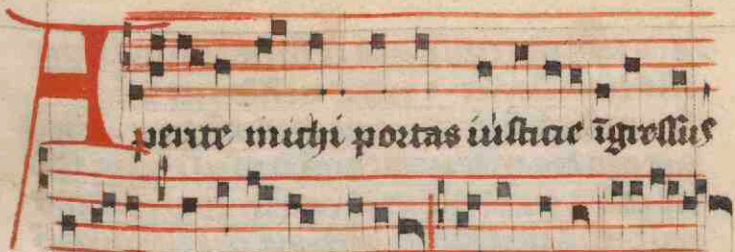 Aperite michi portas iusticie īgressus